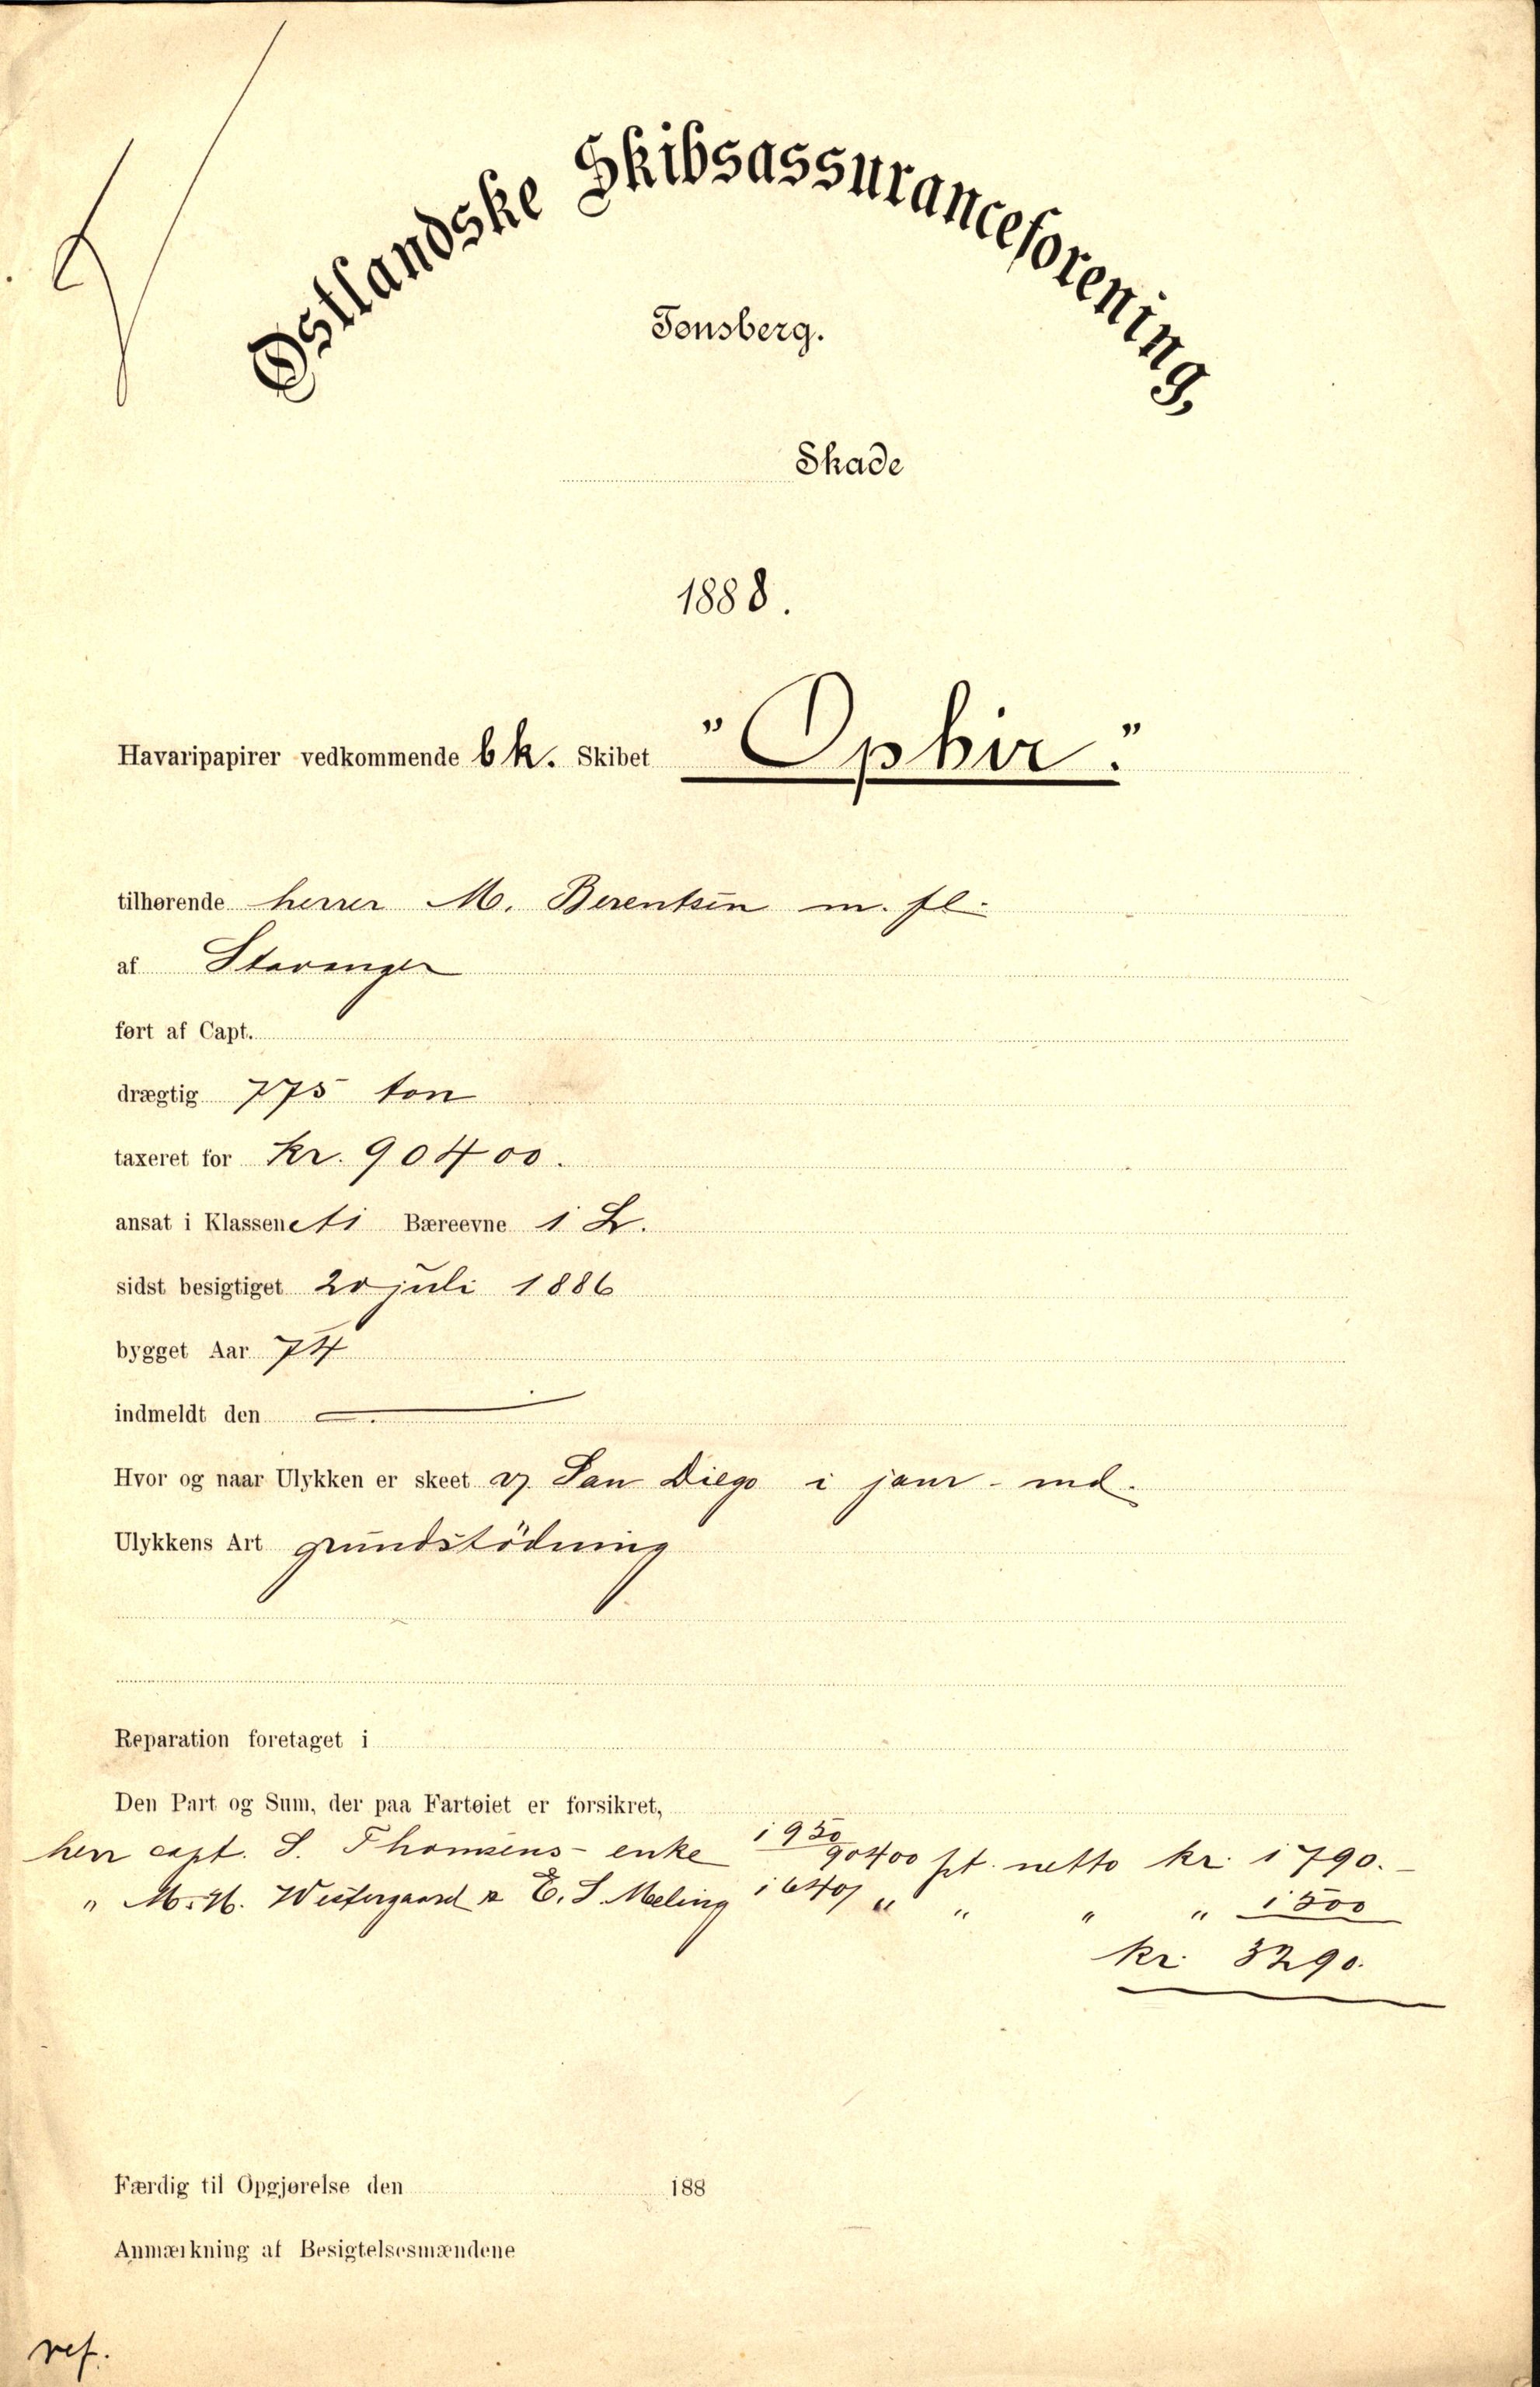 Østlandske Skibsassuranceforening,
Tønsberg.
Skade
1888.
Havaripapirer vedkommende bk. Skibet "Ophir."
tilhørende herrer M. Berentsen m. fl.
af Stavanger
ført af Capt.
drægtig 775 ton
taxeret for kr. 90400.
ansat i Klassen A1 Bæreevne 1 L.
sidst besigtiget 20 juli 1886
bygget Aar 74
indmeldt den
Hvor og naar Ulykken er skeet v/ San Diego i janr. md.
Ulykkens Art grundstödning
Reparation foretaget i
Den Part og Sum, der paa Fartøiet er forsikret,
herr capt. S. Thomsens enke 1950/90400 pt. netto kr. 1790.-
" M. H. Westergaard & E. S. Meling 1640/" " " " 1500
kr. 3290.
Færdig til Opgjørelse den 188
Anmærkning af Besigtelsesmændene
ref.